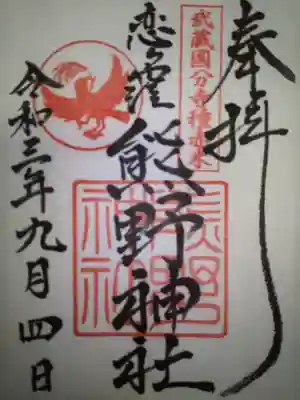 奉拝
武蔵國分寺種赤米
恋窪
熊野神社
熊野
神社
令和三年九月四日